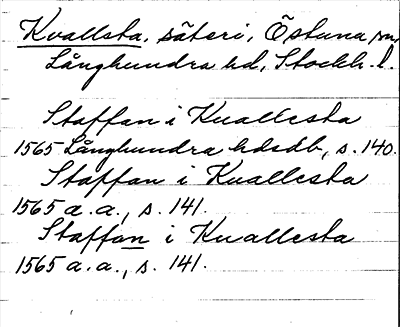 Kvallsta, säteri, Östuna sn,
Långhundra hd, Stockh. l.
Staffan i Kuallesta
1565 Långhundra hdsdb, s. 140.
Staffan i Kuallesta
1565 a. a., s. 141.
Staffan i Kuallesta
1565 a. a., s. 141.